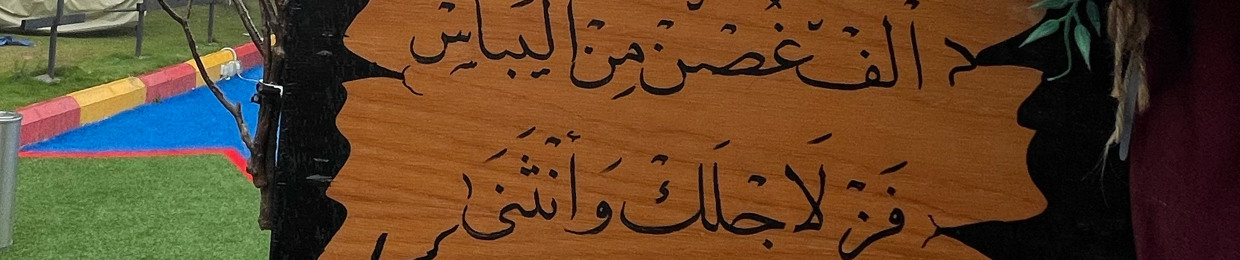 ألف غصن من اليباس
فز لاجلك وانثنى